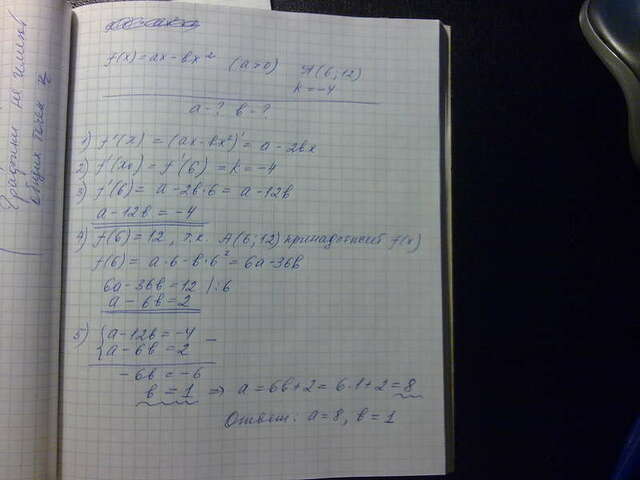 f(x)=ax-bx² (a>0) A(6;12)
k=-4
a-? b-?
1) f'(x) = (ax-bx²)' = a-2bx
2) f'(x₀) = f'(6) = k = -4
3) f'(6) = a-2b·6 = a-12b
a-12b = -4
4) f(6)=12, т.к. A(6;12) принадлежит f(x)
f(6) = a·6-b·6² = 6a-36b
6a-36b=12 /:6
a-6b=2
5) {a-12b=-4
{a-6b=2 -
-6b=-6
b=1 => a=6b+2=6·1+2=8
Ответ: a=8, b=1
общих точек